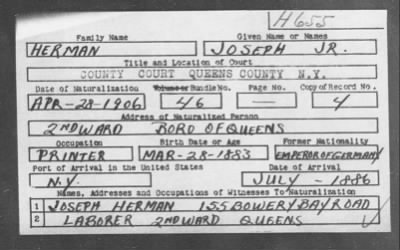 H655
Family Name Given Name or Names
HERMAN JOSEPH JR.
Title and Location of Court
COUNTY COURT QUEENS COUNTY N.Y.
Date of Naturalization Volume or Bundle No. Page No. Copy of Record No.
APR-28-1906 46 — 4
Address of Naturalized Person
2ND WARD BORO OF QUEENS
Occupation Birth Date or Age Former Nationality
PRINTER MAR-28-1883 EMPEROR OF GERMANY
Port of Arrival in the United States Date of Arrival
N.Y. JULY - 1886
Names, Addresses and Occupations of Witnesses To Naturalization
1 JOSEPH HERMAN 155 BOWERY BAY ROAD
2 LABORER 2ND WARD QUEENS